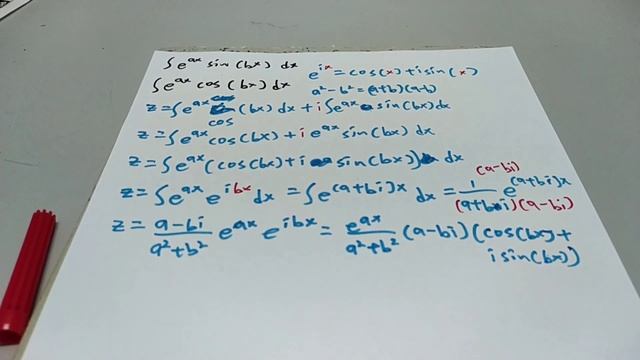 ∫e^{ax} sin(bx) dx
e^{ix} = cos(x) + i sin(x)
∫e^{ax} cos(bx) dx
a² - b² = (a+b)(a-b)
z = ∫e^{ax} cos (bx) dx + i ∫e^{ax} sin(bx) dx
z = ∫e^{ax} cos(bx) + i e^{ax} sin(bx) dx
z = ∫e^{ax} (cos(bx) + i sin(bx)) dx
z = ∫e^{ax} e^{ibx} dx = ∫e^{(a+bi)x} dx = \frac{1 (a-bi)}{(a+bi)(a-bi)} e^{(a+bi)x}
z = \frac{a-bi}{a²+b²} e^{ax} e^{ibx} = \frac{e^{ax}}{a²+b²} (a-bi)(cos(bx) +
i sin(bx))